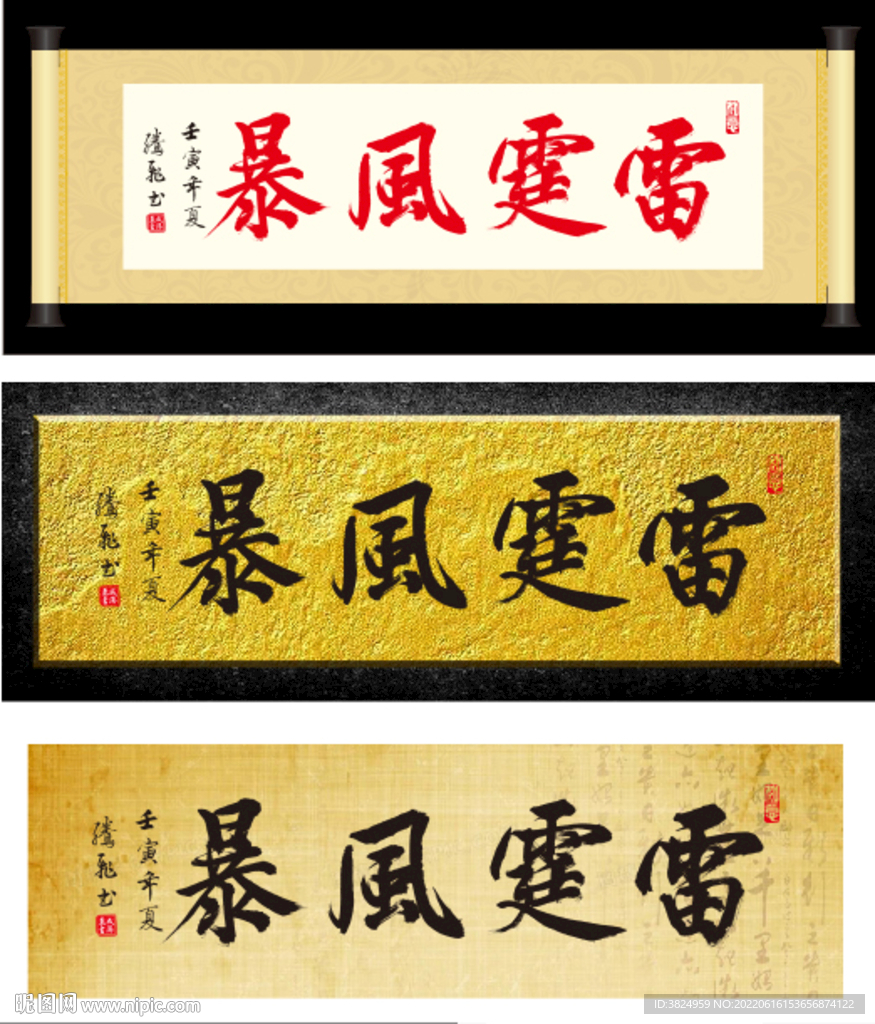 雷霆風暴
壬寅年夏
騰飛书
雷霆風暴
壬寅年夏
騰飛书
雷霆風暴
壬寅年夏
騰飛书
昵图网 www.nipic.com
ID:3824959 NO:20220616153656874122